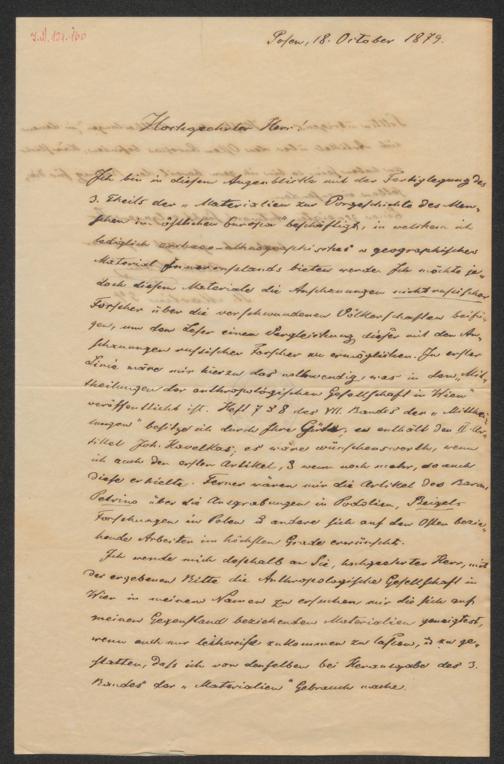 Posen, 18. October 1879.
Hochgeehrter Herr!
Ich bin in diesem Augenblicke mit der Fertiglegung des
3. Theils der „Materialien zur Vorgeschichte des Men-
schen im östlichen Europa" beschäftigt, in welchem ich
lediglich geographisches
Material Innerrusslands bieten werde. Ich möchte je-
doch diesem Materiale die Anschauungen nichtrussischer
Forscher über die verschwundenen Völkerschaften beifü-
gen, um dem Leser einen Vergleich dieser mit den An-
schauungen russischer Forscher zu ermöglichen. In erster
Linie wäre mir hierzu das nothwendig, was in den „Mit-
theilungen der anthropologischen Gesellschaft in Wien"
veröffentlicht ist. Heft 7 & 8 des VII. Bandes der „Mitthei-
lungen" besitze ich durch Ihre Güte, es enthält den II. Ar-
tikel Joh. Havelkas; es wäre wünschenswerth, wenn
ich auch den ersten Artikel, & wenn noch mehr, so auch
diese erhielte. Ferner wären mir die Artikel des Barons
Petrino über die Ausgrabungen in Podolien,
Forschungen in Polen & andere sich auf den Osten bezie-
hende Arbeiten im höchsten Grade erwünscht.
Ich wende mich deshalb an Sie, hochgeehrter Herr, mit
der ergebenen Bitte die Anthropologische Gesellschaft in
Wien in meinem Namen zu ersuchen mir die sich auf
meinen Gegenstand beziehenden Materialien geneigtest,
wenn auch nur leihweise zukommen zu lassen, & zu ge-
statten, daß ich von denselben bei Herausgabe des 3.
Bandes der „Materialien" Gebrauch mache.